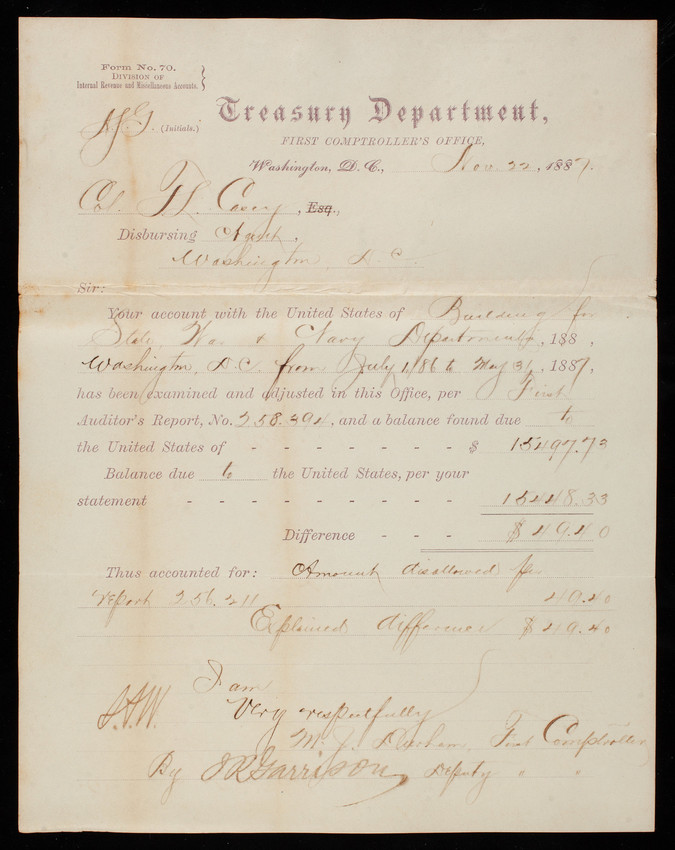 Form No. 70.
DIVISION OF
Internal Revenue and Miscellaneous Accounts.
(Initials.)
Treasury Department,
FIRST COMPTROLLER'S OFFICE,
Washington, D. C., Nov. 22, 1887.
Col. T. L. Casey, Esq.,
Disbursing Agent,
Washington, D.C.
Sir:
Your account with the United States of Building for
State, War & Navy Departments, 188 ,
Washington, D.C. from July 1, 86 to May 31, 1887,
has been examined and adjusted in this Office, per First
Auditor's Report, No. 258.394, and a balance found due to
the United States of - - - - - - - $ 15497.73
Balance due to the United States, per your
statement - - - - - - - - - 15448.33
Difference - - - $49.40
Thus accounted for: Amount disallowed per
report 256.211 49.40
Explained difference $49.40
I am
Very respectfully
M. J. Durham, First Comptroller
By J R Garrison, Deputy " "